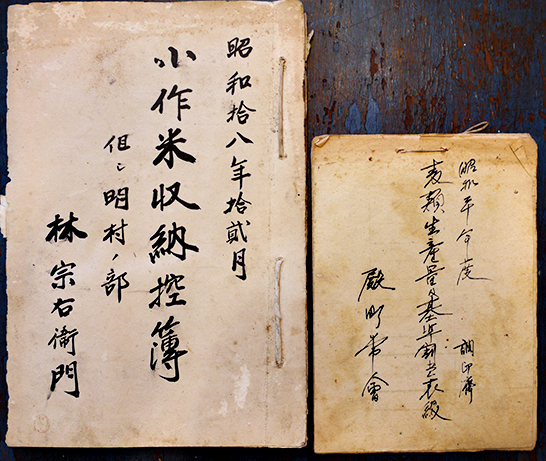 昭和拾八年拾貮月
小作米収納控簿
但シ明村ノ部
林宗右衛門
昭和 年 度 調印濟
麦類生産量 基準割当表
殿町常會